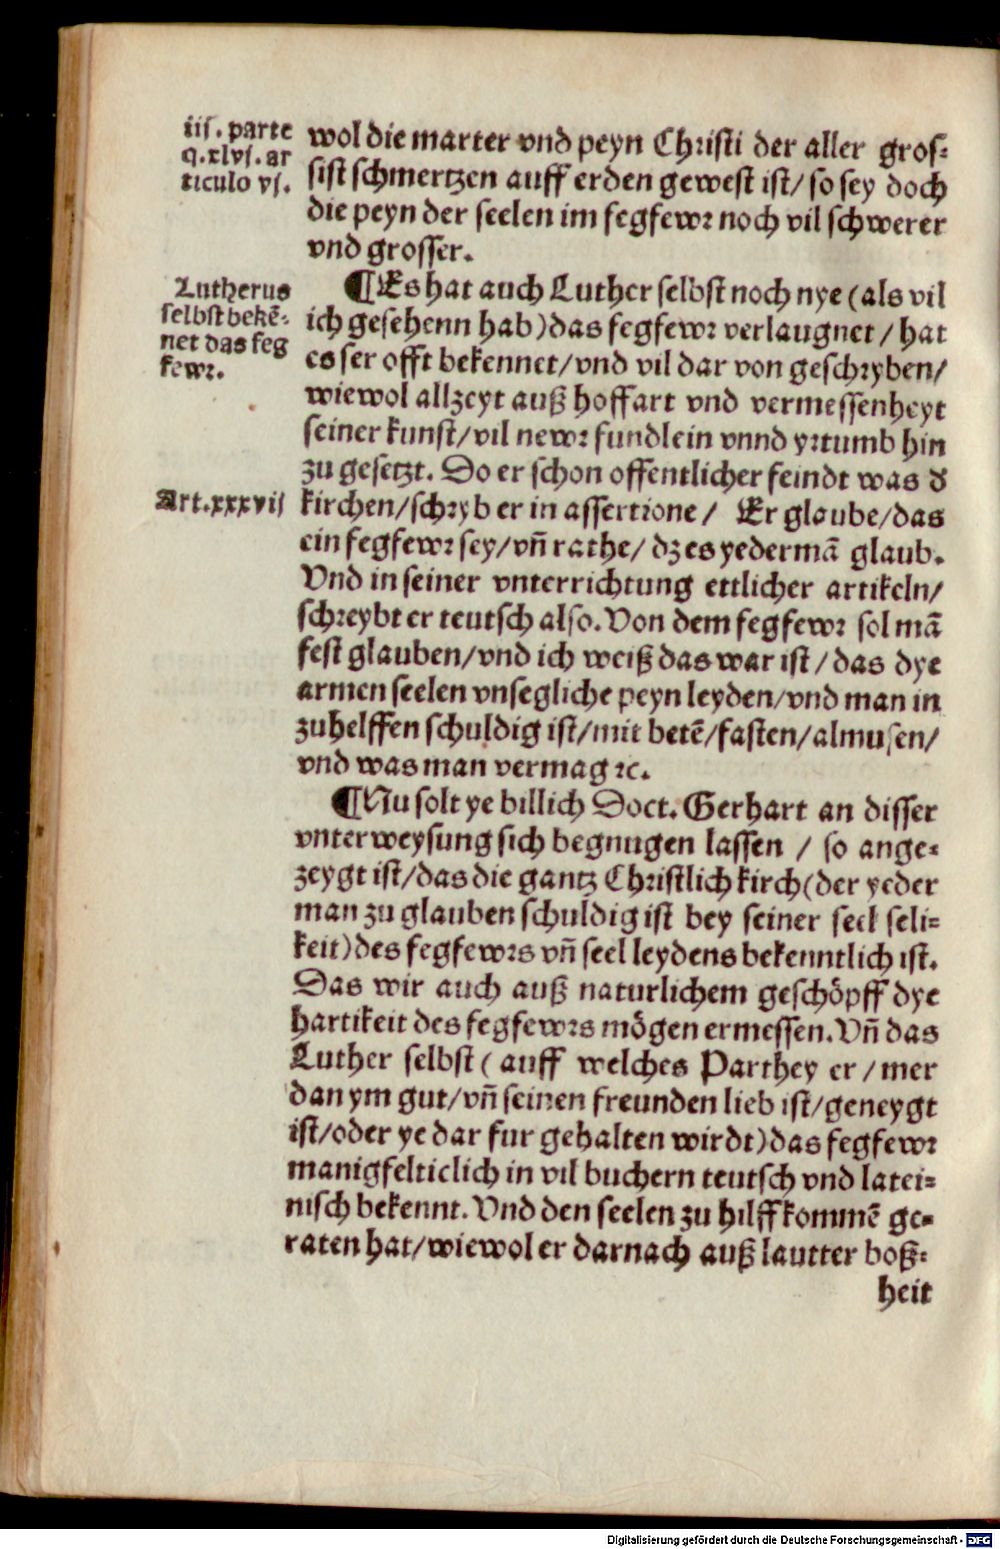 iij. parte
q.xlvj. ar
ticulo vj.
wol die marter vnd peyn Christi der aller gros⸗
sist schmertzen auff erden gewest ist/ so sey doch
die peyn der seelen im fegfewr noch vil schwerer
vnd grosser.
Lutherus
selbst bekē⸗
net das feg
fewr.
¶Es hat auch Luther selbst noch nye (als vil
ich gesehenn hab) das fegfewr verlaugnet / hat
es ser offt bekennet/vnd vil dar von geschryben/
wiewol allzeyt auß hoffart vnd vermessenheyt
seiner kunst/vil newr fundlein vnnd yrtumb hin
zu gesetzt. Do er schon offentlicher feindt was d̕
Art.xxxvij
kirchen/schryb er in assertione / Er glaube/das
ein fegfewr sey/vñ rathe/ dz es yedermā glaub.
Vnd in seiner vnterrichtung ettlicher artikeln/
schreybt er teutsch also. Von dem fegfewr sol mā
fest glauben/vnd ich weiß das war ist / das dye
armen seelen vnsegliche peyn leyden/vnd man in
zu helffen schuldig ist/mit betē/fasten/almusen/
vnd was man vermag ꝛc.
¶Nu solt ye billich Doct. Gerhart an disser
vnterweysung sich begnugen lassen / so ange⸗
zeygt ist/das die gantz Christlich kirch(der yeder
man zu glauben schuldig ist bey seiner seel seli⸗
keit)des fegfewrs vñ seel leydens bekenntlich ist.
Das wir auch auß naturlichem geschöpff dye
hartikeit des fegfewrs mögen ermessen. Vñ das
Luther selbst ( auff welches Parthey er / mer
dan ym gut/vñ seinen freunden lieb ist/geneygt
ist/oder ye dar fur gehalten wirdt)das fegfewr
manigfelticlich in vil buchern teutsch vnd latei⸗
nisch bekennt. Vnd den seelen zu hilff kommē ge⸗
raten hat/wiewol er darnach auß lautter boß⸗
heit
Digitalisierung gefördert durch die Deutsche Forschungsgemeinschaft - DFG